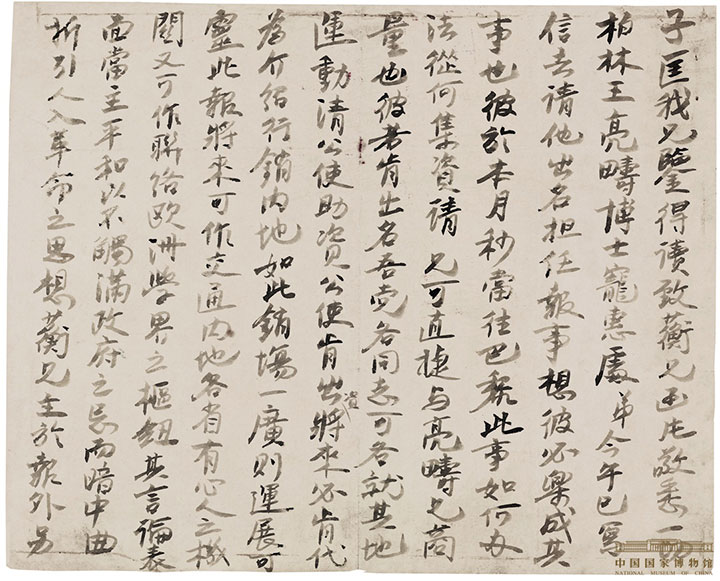 子匡我兄鑒得讀致蘅兄函片敬悉一切
柏林王亮疇博士寵惠處弟今午已寫
信去請他出名担任報事想彼必樂成其
事也彼於本月秒當往巴黎此事如何办
法從何集資請 兄可直捷与亮疇兄商
量也彼若肯出名吾党各同志可各就其地
運動清公使助資公使肯出資將來必肯代
為介紹行銷内地如此銷場一廣則運展可
靈此報將來可作交通内地各省有心人之機
関又可作聯絡欧洲學界之樞紐其言論表
面當主平和以不觸滿政府之忌而暗中曲
折引人入革命之思想蘅兄主於報外另
中国国家博物馆
NATIONAL MUSEUM OF CHINA